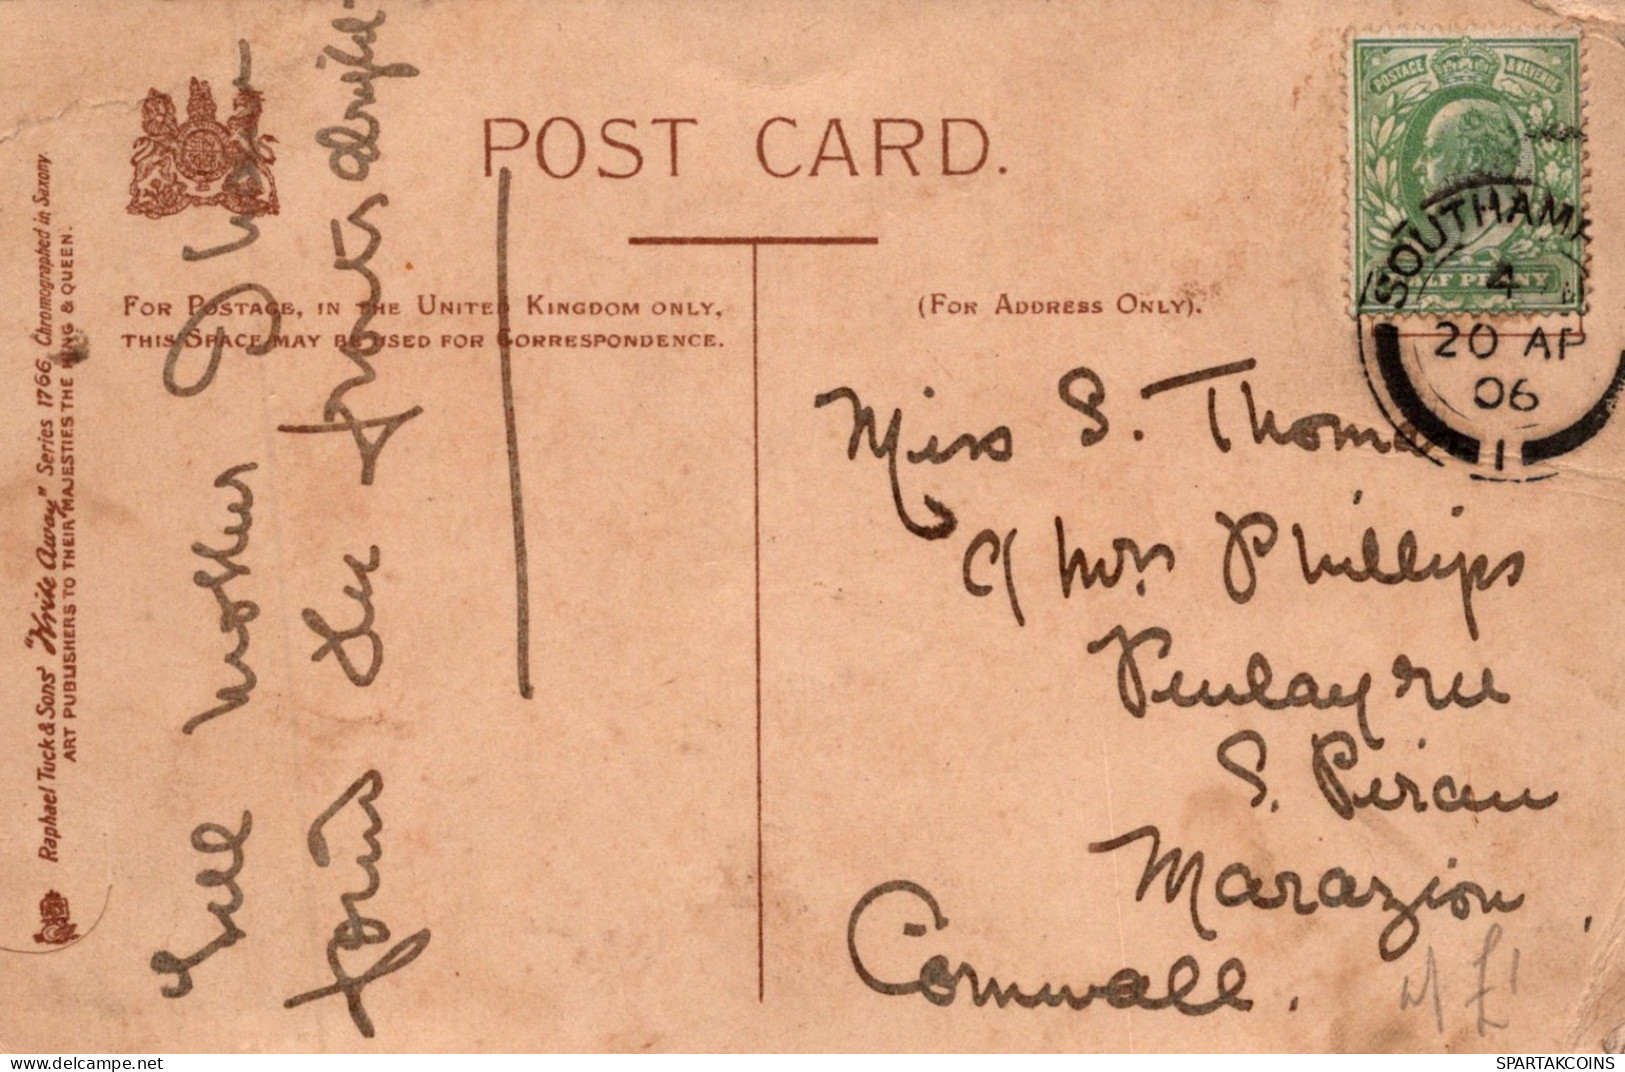 POST CARD.
FOR POSTAGE, IN THE UNITED KINGDOM ONLY,
THIS SPACE MAY BE USED FOR CORRESPONDENCE.
(FOR ADDRESS ONLY).
Raphael Tuck & Sons' "Write Away" Series 1766. Chromographed in Saxony.
ART PUBLISHERS TO THEIR MAJESTIES THE KING & QUEEN.
POSTAGE & REVENUE
SOUTHAMP
4
20 AP
06
1
Tell mother I
the
Miss S. Thomas
c/ Mrs Phillips
S. Piran
Marazion
Cornwall.
£1
SPARTAKCOINS